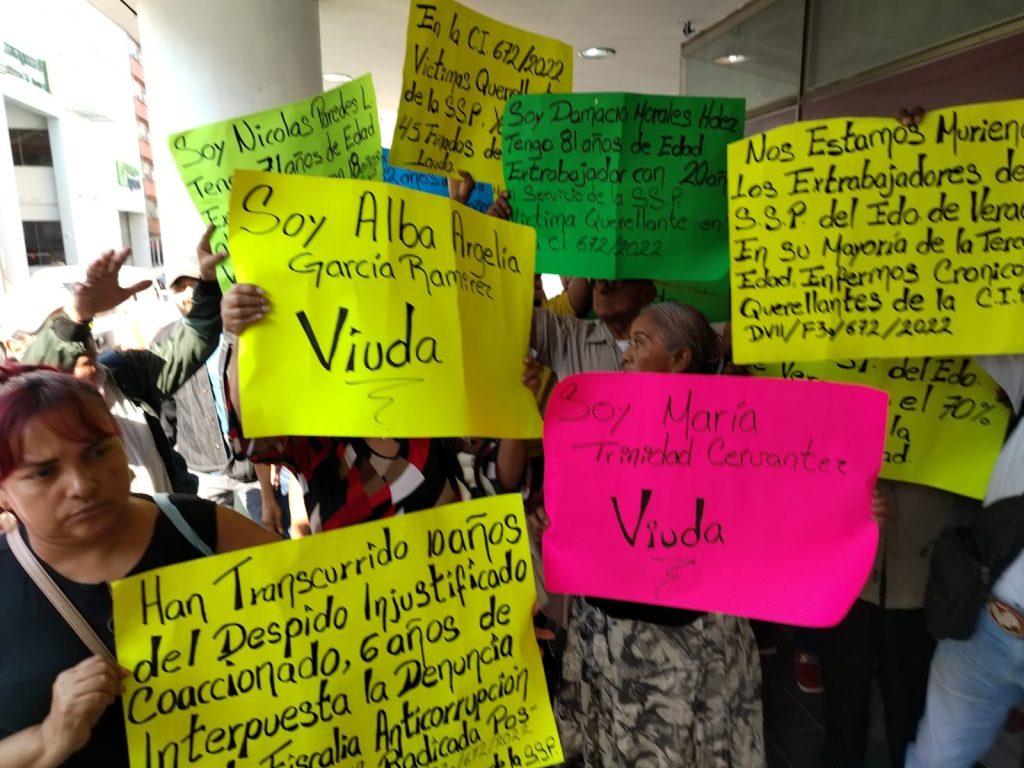 En la C.I. 672/2022
Victimas Querellantes
de la SSP,
45 Finados de
Soy Nicolas Paredes L
Tengo 71 años de Edad
Soy Damacio Morales Hdez
Tengo 81 años de Edad
Extrabajador con 20 añ
Servicio de la S.S.P.
Victima Querellante en
C.I. 672/2022
Nos Estamos Murien
Los Extrabajadores de
S.S.P. del Edo de Verac
En su Mayoría de la Terce
Edad, Enfermos Cronico
Querellantes de la C.I.
DVII/F3ª/672/2022
Soy Alba Argelia
García Ramirez
Viuda
del Edo.
el 70%
la
Soy María
Trinidad Cervantez
Viuda
Han Transcurrido 10 años
del Despido Injustificado
Coaccionado, 6 años de
Interpuesta la Denuncia
Fiscalia Anticorrupción
Radicada Pos-
672/2022
de la SSP